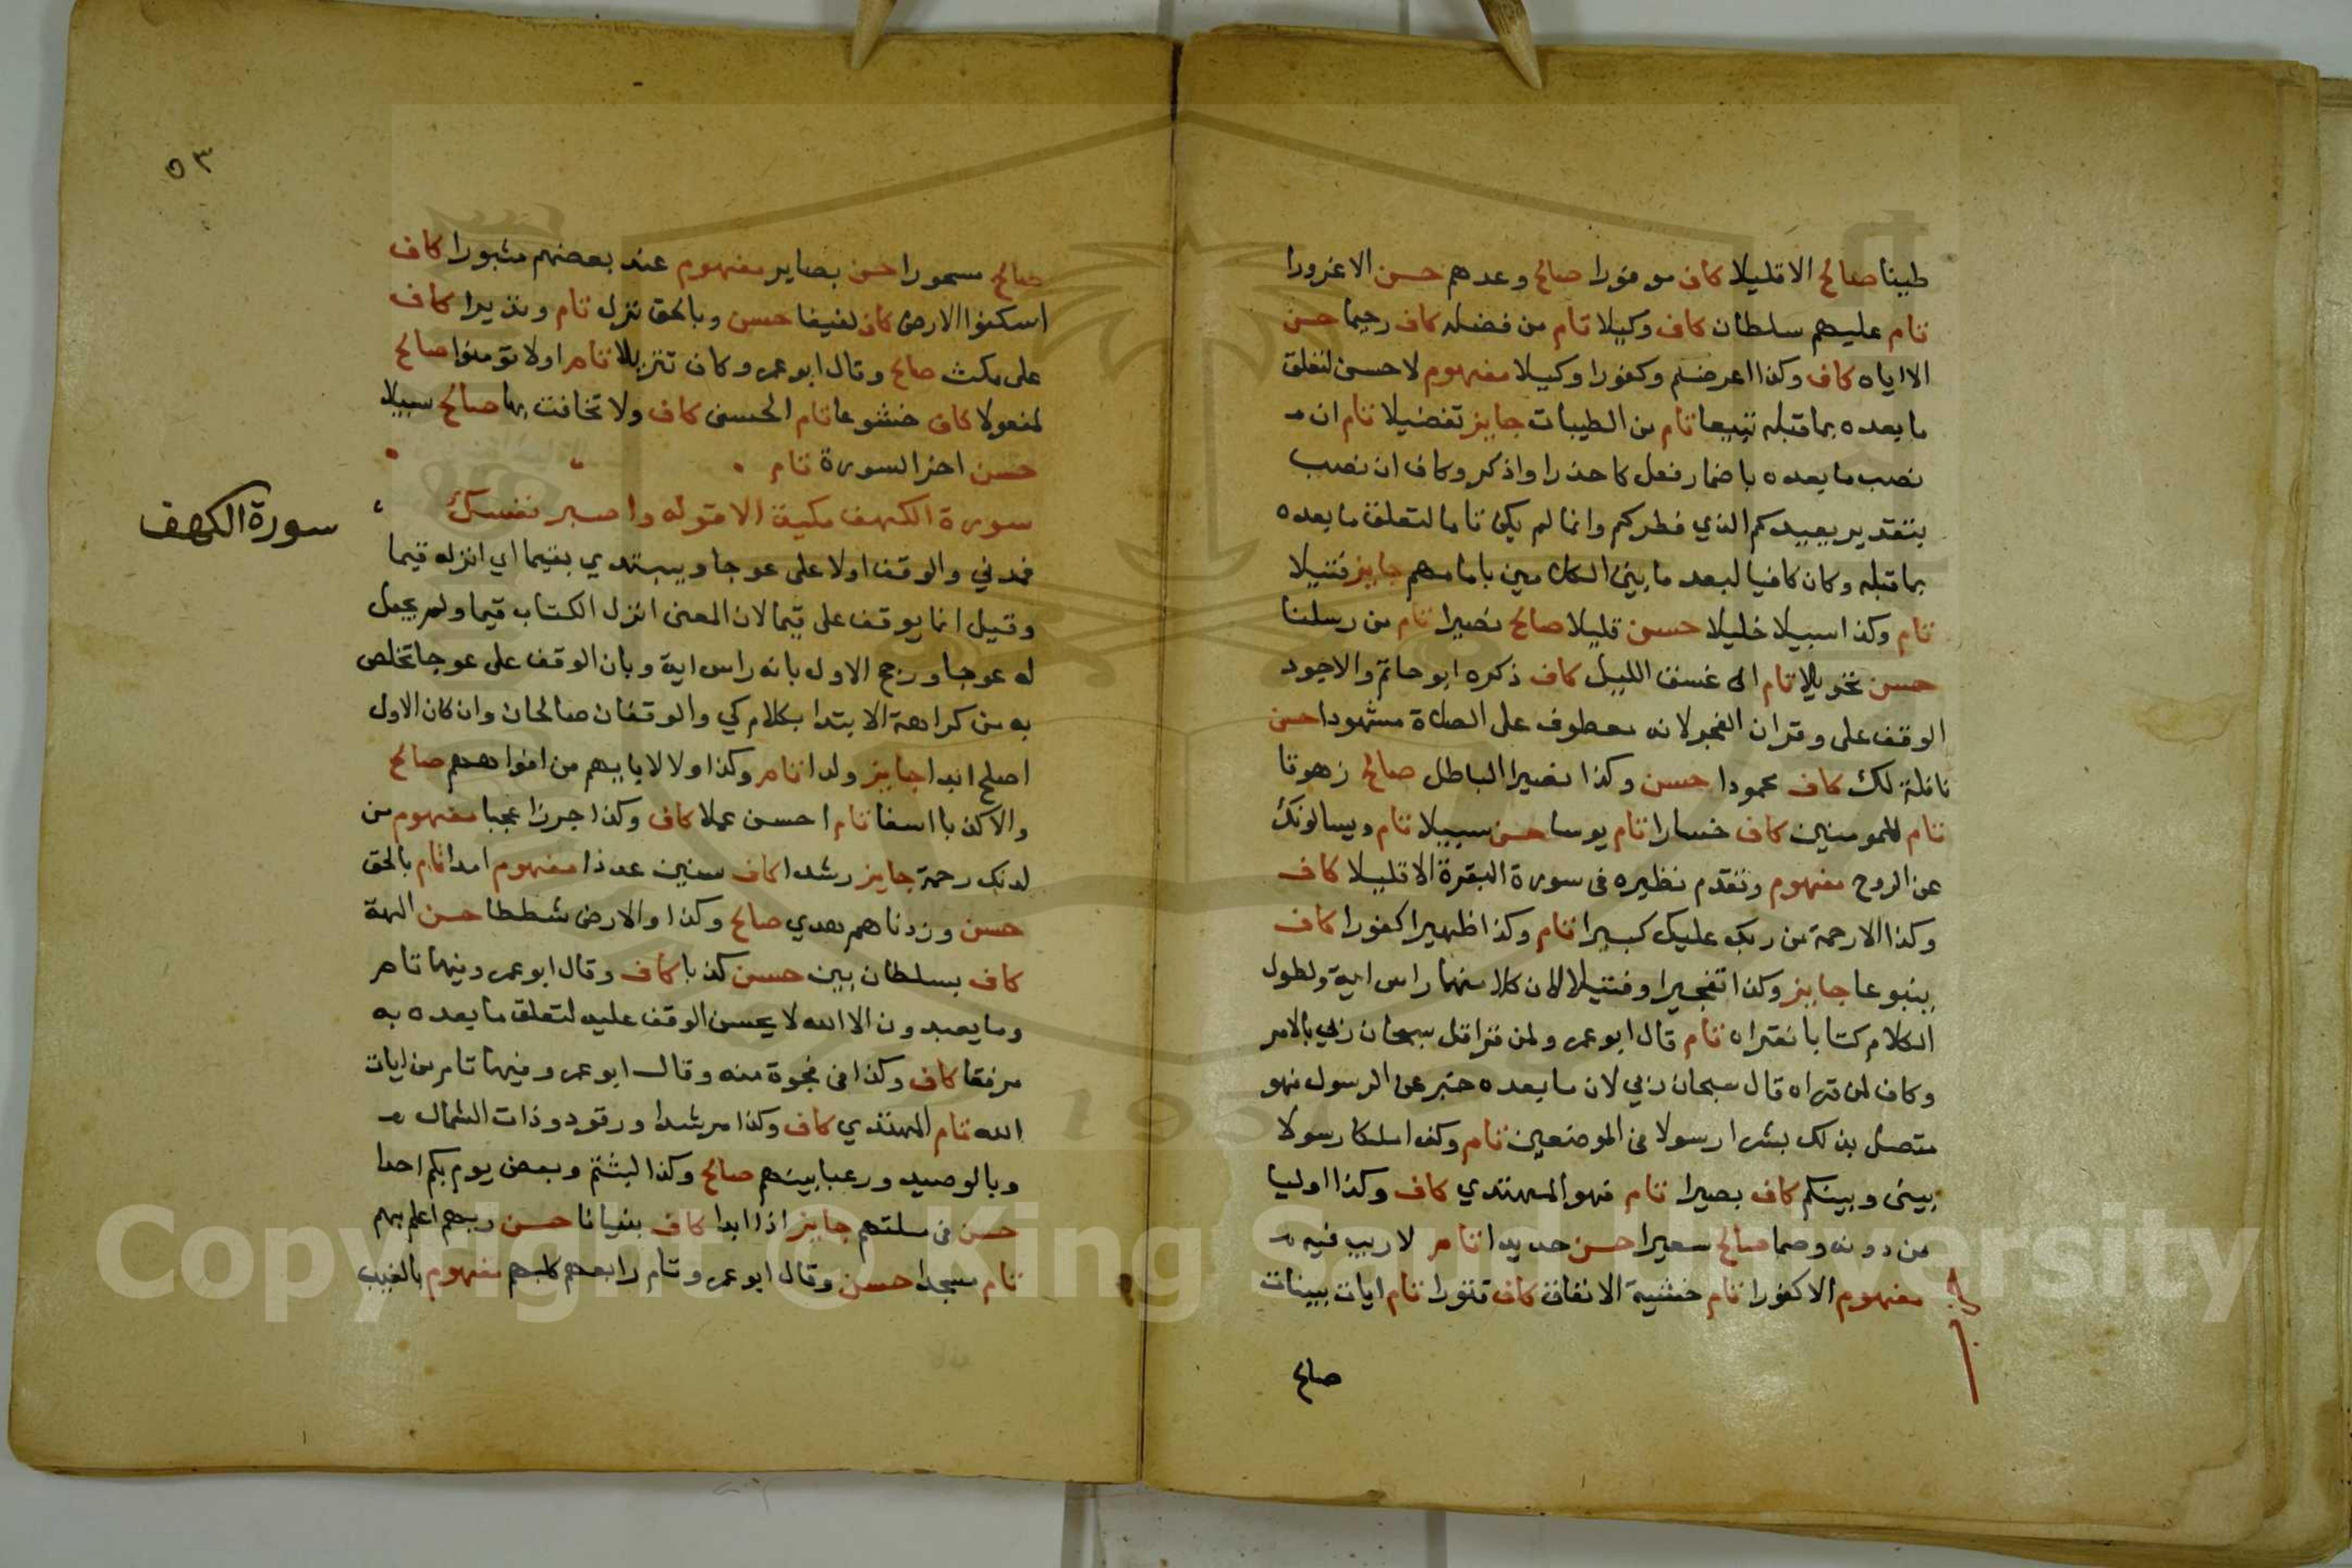 طينا صالح الا قليلا كاف موفورا صالح وعدهم حسن الا غرورا
تام عليهم سلطان كاف وكيلا تام من فضله كاف رحيما حسن
الا اياه كاف وكذا اعرضتم وكفورا وكيلا مفهوم لا حسن لتعلق
ما بعده بما قبله تبيعا تام من الطيبات جايز تفضيلا تام ان
نصب ما بعده باضمار فعل كاحذرا واذكر وكاف ان نصب
بتقدير يعيدكم الذي فطركم وانما لم يكن تاما لتعلق ما بعده
بما قبله وكان كافيا لبعد ما بين الكلامين بامامهم جايز فتيلا
تام وكذا سبيلا خليلا حسن قليلا صالح نصيرا تام من رسلنا
حسن تحويلا تام الى غسق الليل كاف ذكره ابو حاتم والاجود
الوقف على وقران الفجر لانه معطوف على الصلاة مشهودا حسن
نافلة لك كاف محمودا حسن وكذا نصيرا الباطل صالح زهوقا
تام للمومنين كاف خسارا تام يوسا حسن سبيلا تام ويسالونك
عن الروح مفهوم وتقدم نظيره فى سورة البقرة الا قليلا كاف
وكذا الا رحمة من ربك عليك كبيرا تام وكذا ظهيرا كفورا كاف
ينبوعا جايز وكذا تفجيرا وقبيلا لان كلا منهما راس اية ولطول
الكلام كتابا نقراه تام قال ابو عمر ولمن قرا قل سبحان ربي بالامر
وكاف لمن قراه قال سبحان ربي لان ما بعده خبر عن الرسول فهو
متصل بذلك بشرا رسولا فى الموضعين تام وكذا ملكا رسولا
بينى وبينكم كاف بصيرا تام فهو المهتدي كاف وكذا اوليا
من دونه وصما صالح سعيرا حسن جديدا تام لا ريب فيه
مفهوم الا كفورا تام خشية الانفاق كاف قتورا تام ايات بينات
صالح
٥٣
صالح مسحورا حسن بصاير مفهوم عند بعضهم مثبورا كاف
اسكنوا الارض كاف لفيفا حسن وبالحق نزل تام ونذيرا كاف
على مكث صالح وقال ابو عمر وكاف تنزيلا تام او لا تومنوا صالح
لمفعولا كاف خشوعا تام الحسنى كاف ولا تخافت بها صالح سبيلا
حسن اخر السورة تام
سورة الكهف مكية الا قوله واصبر نفسك
سورة الكهف
فمدني والوقف اولا على عوجا ويبتدي بقيما اي انزله قيما
وقيل انما يوقف على قيما لان المعنى انزل الكتاب قيما ولم يجعل
له عوجا ورجح الاول بانه راس اية وبان الوقف على عوجا تخلص
به من كراهة الابتدا بكلام كي والوقفان صالحان وان كان الاول
اصلح ابدا جايز ولدا تام وكذا ولا لابايهم من افواههم صالح
والا كذبا اسفا تام احسن عملا كاف وكذا جرزا عجبا مفهوم من
لدنك رحمة جايز رشدا كاف سنين عددا مفهوم امدا تام بالحق
حسن وزدناهم هدي صالح وكذا والارض شططا حسن الهة
كاف بسلطان بين حسن كذبا كاف وقال ابو عمر وفيها تام
وما يعبدون الا الله لا يحسن الوقف عليه لتعلق ما بعده به
مرفقا كاف وكذا فى فجوة منه وقال ابو عمر وفيها تام من ايات
الله تام المهتدي كاف وكذا مرشدا ورقود وذات الشمال
وبالوصيد ورعبا بينهم صالح وكذا لبثتم وبعض يوم بكم احدا
حسن فى ملتهم جايز اذا ابدا كاف بنيانا حسن ربهم اعلم بهم
تام مسجدا حسن وقال ابو عمر وتام رابعهم كلبهم مفهوم بالغيب
Copyright © King Saud University